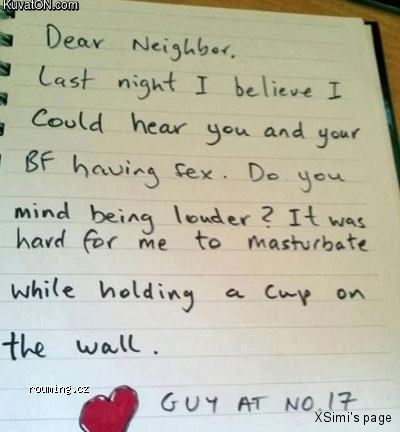 KuvatON.com
Dear Neighbor,
Last night I believe I
Could hear you and your
BF having sex. Do you
mind being louder? It was
hard for me to masturbate
while holding a cup on
the wall.
rouming.cz
GUY AT NO.17
XSimi's page